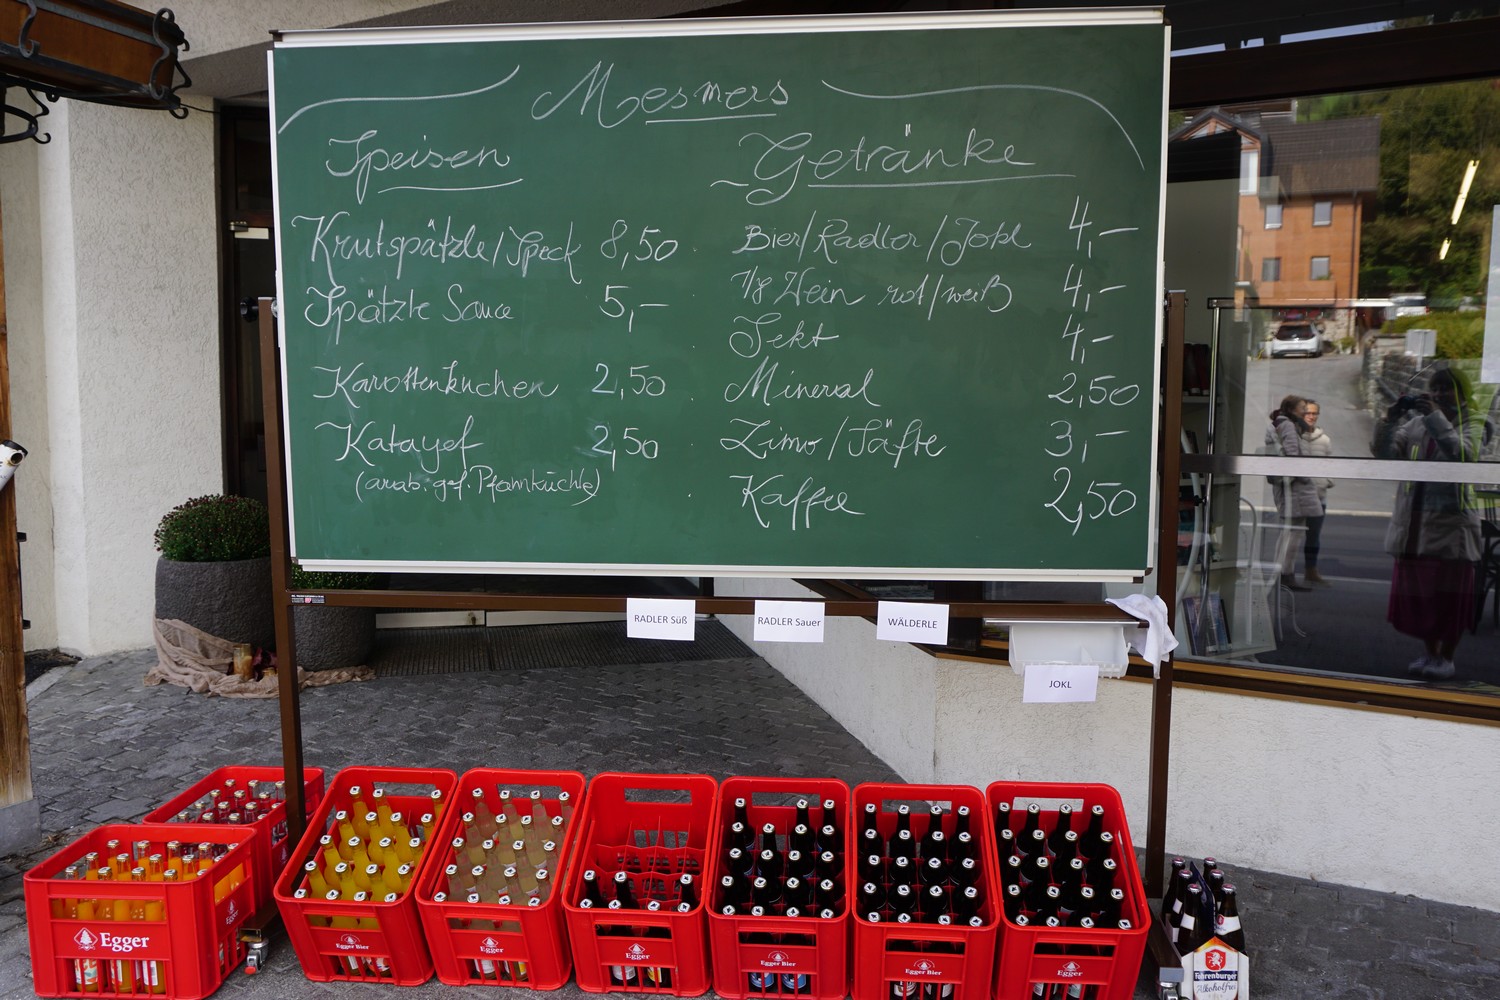 Mesmers
Speisen
Krutspätzle/Speck 8,50
Spätzle Sauce 5,–
Karottenkuchen 2,50
Katayef 2,50
(arab. gef. Pfannküchle)
Getränke
Bier/Radler/Jokl 4,–
1/8 Wein rot/weiß 4,–
Sekt 4,–
Mineral 2,50
Limo/Säfte 3,–
Kaffee 2,50
RADLER Süß
RADLER Sauer
WÄLDERLE
JOKL
Egger
Egger Bier
Egger
Egger
Egger Bier
Egger Bier
Egger
Fohrenburger
Alkoholfrei